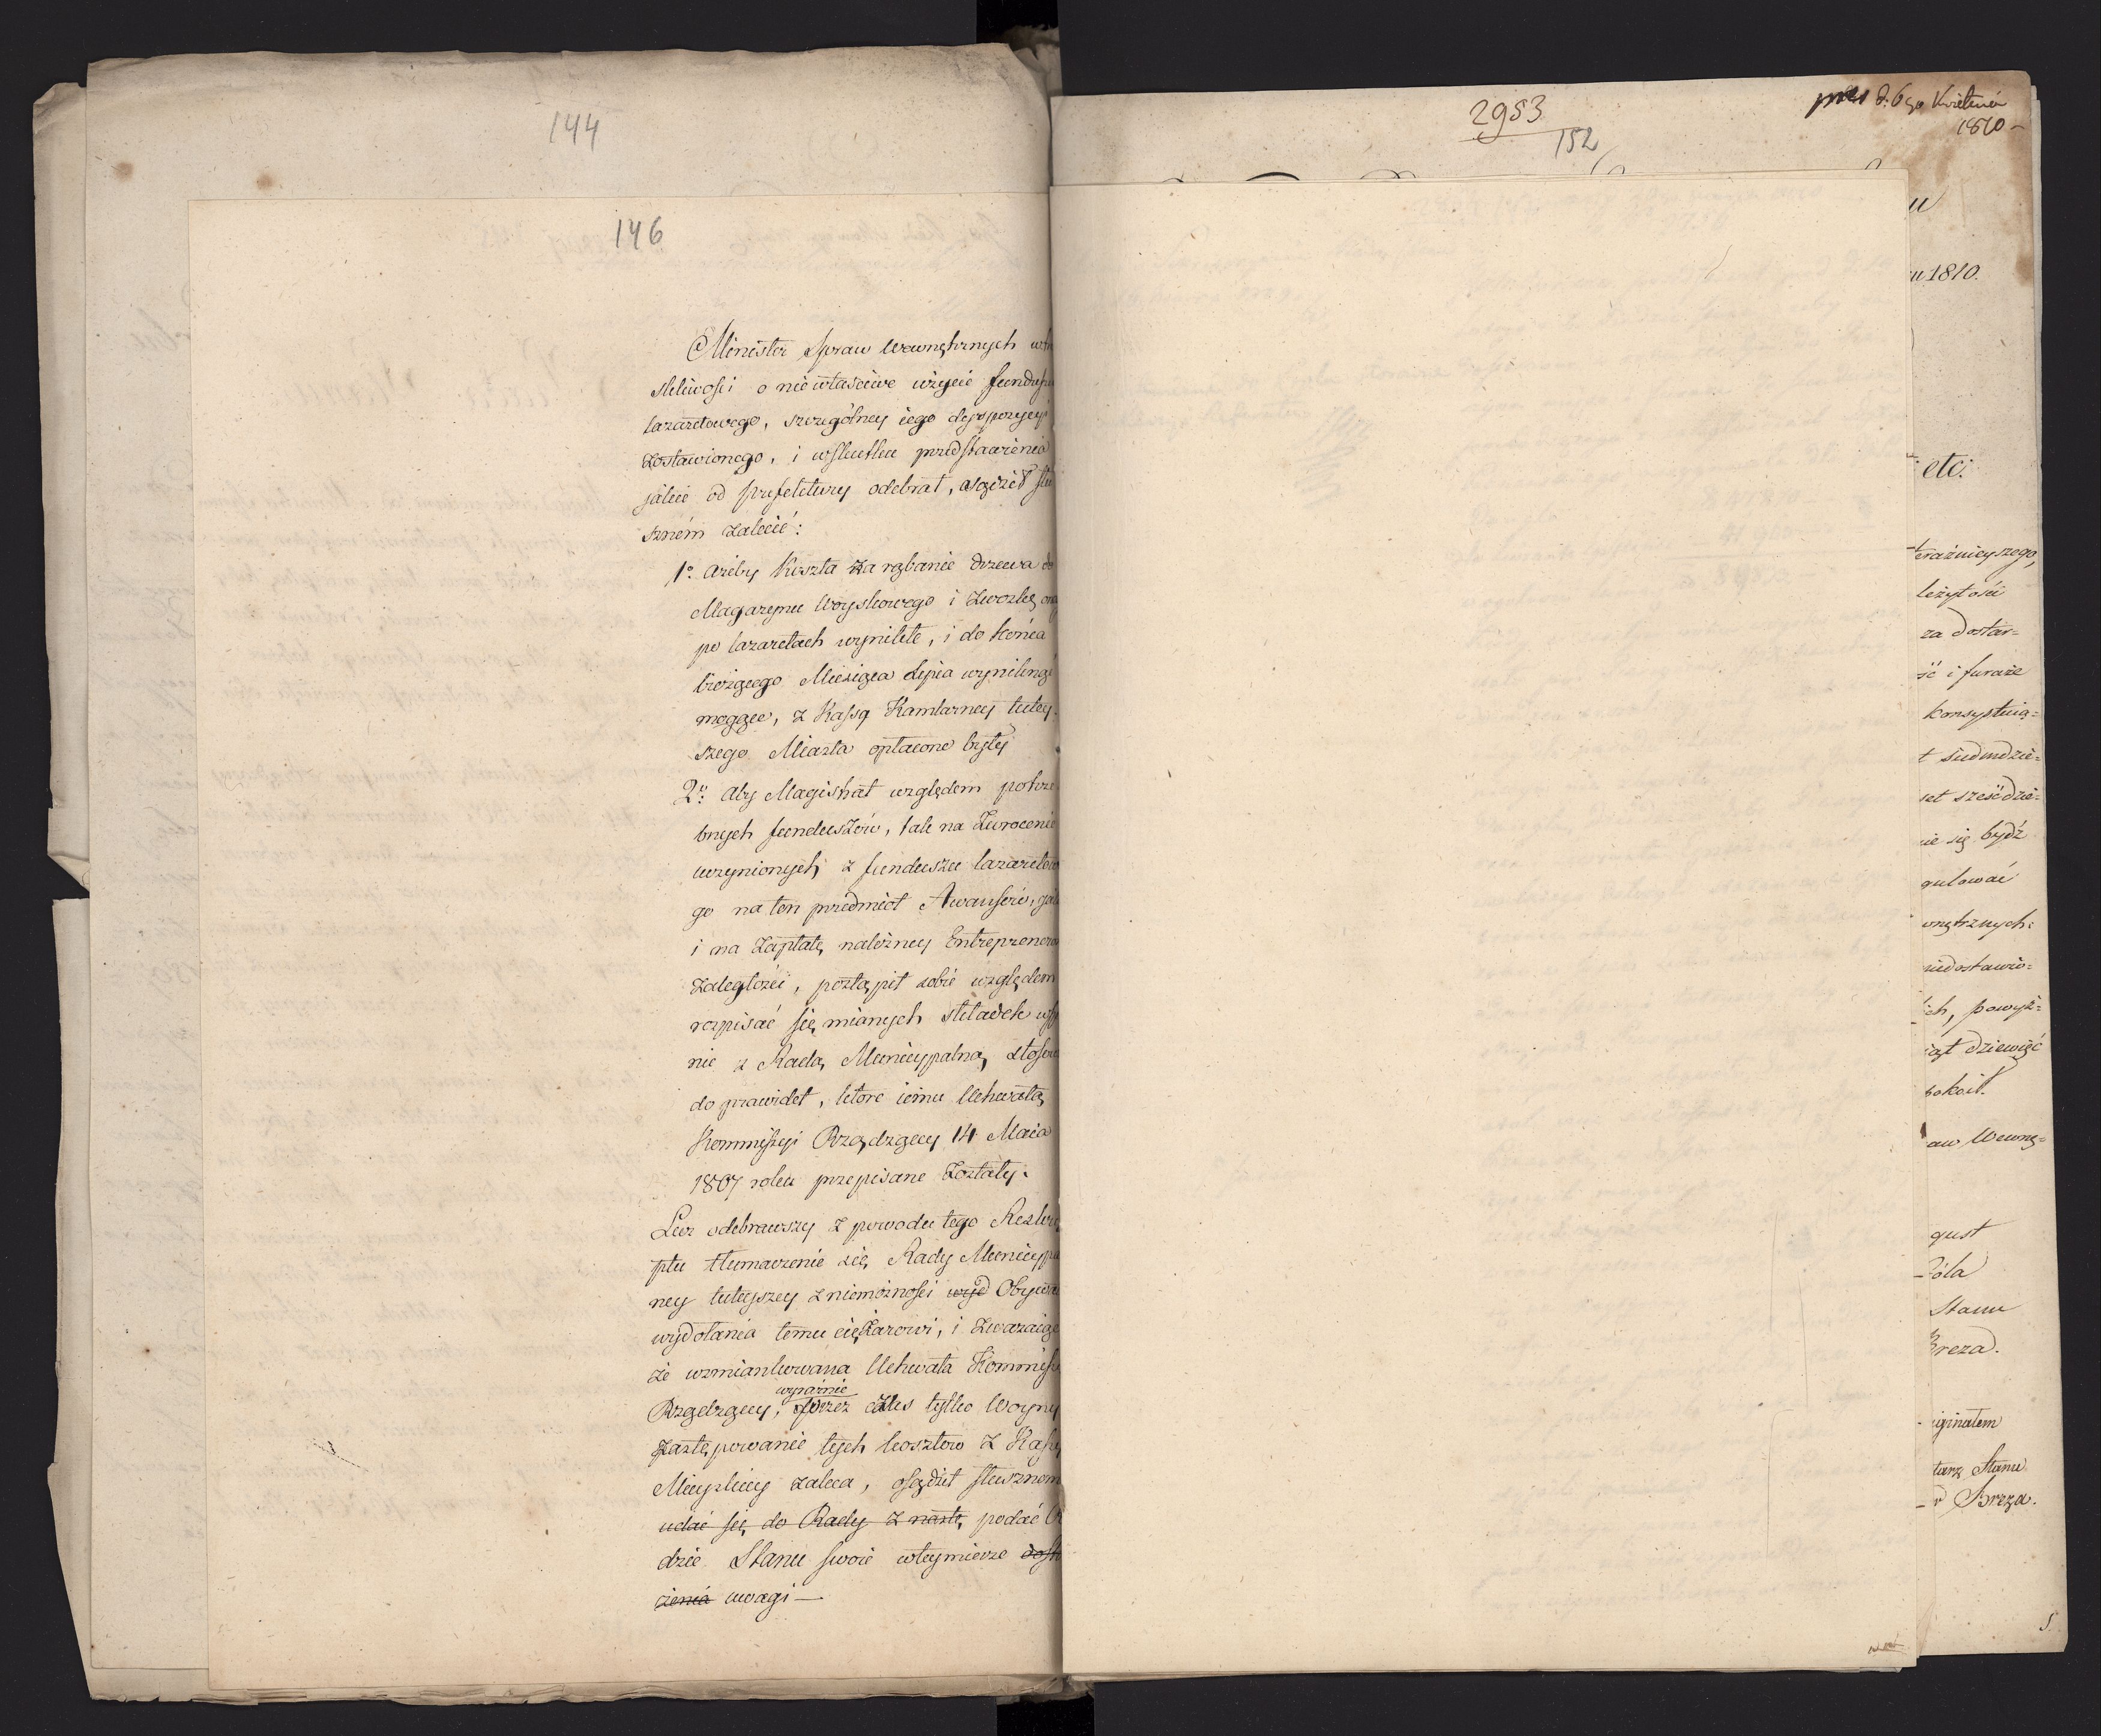 144
146
Minister Spraw Wewnętrznych
skliwości o niewłaściwe użycie funduszu
lazaretowego, szczególney iego dyspozycyi
zostawionego, i wskutku przedstawienia
jakie od prefektury odebrał, osądził słu
szném zalecić:
1º ażeby Koszta za rąbanie drzewa do
Magazynu Woyskowego i zwozkę
po lazaretach wynikłe, i do końca
bieżącego Miesiąca Lipca wyniknąć
mogące, z Kassą Kamlarney tutey-
szego Miasta opłacone były
2º: Aby Magistrat względem potrze
bnych funduszów, tak na Zwrocenie
uczynionych z funduszu lazaretowe
go na ten przedmiot Awansów, jak
i na Zapłatę należney Entreprenerow
zaległości, postąpił sobie względem
rozpisać się mianych składek
nie z Radą Municypalną, stosow
do prawideł, które iemu Uchwałą
Kommissyi Rządzącey 14 Maia
1807 roku przepisane zostały.
Lecz odebrawszy z powodu tego Reskry
ptu tłumaczenie się Rady Municypal
ney tuteyszey z niemożności Obywa
wydołania temu ciężarowi, i zważaiąc
że wzmiankowana Uchwała Kommissyi
wyraźnie
Rządzącey, przez czas tylko Woyny
zastępowanie tych kosztow z Kassy
Mieyskiey zaleca, osądził słusznem
udać się do Rady z podać
dzie Stanu swoie wteymierze
czenia uwagi —
2953
152
pres d: 6go Kwietnia
1810 –
u
u 1810.
etc:
teraźnieyszego,
leżytości
za dostar=
ść i furaże
konsystuią=
t siedmdzie=
set sześćdzie=
ie się bydź
gulować
wnętrznych:
niedostawio=
ich, powyż=
iąt dziewięć
pokoił.
aw Wewnę=
gust
óla
Stanu
Breza.
iginałem
tarz Stanu
Breza.